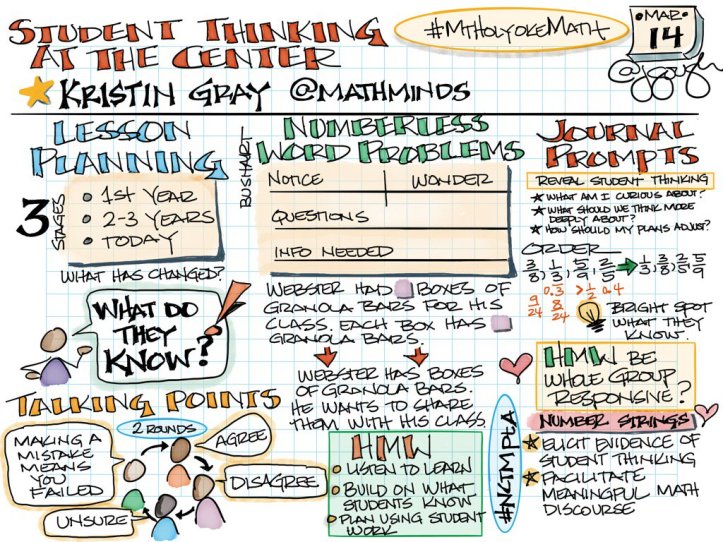 STUDENT THINKING
AT THE CENTER
#MTHOLYOKEMATH
MAR
14
@jgough
KRISTIN GRAY @MATHMINDS
LESSON
PLANNING
3
STAGES
1ST YEAR
2-3 YEARS
TODAY
WHAT HAS CHANGED?
WHAT DO
THEY
KNOW?
TALKING POINTS
2 ROUNDS
MAKING A
MISTAKE
MEANS
YOU
FAILED
AGREE
DISAGREE
UNSURE
BUSHART
NUMBERLESS
WORD PROBLEMS
NOTICE
WONDER
QUESTIONS
INFO NEEDED
WEBSTER HAD BOXES OF
GRANOLA BARS FOR HIS
CLASS. EACH BOX HAS
GRANOLA BARS.
WEBSTER HAS BOXES
OF GRANOLA BARS.
HE WANTS TO SHARE
THEM WITH HIS CLASS
HMW
LISTEN TO LEARN
BUILD ON WHAT
STUDENTS KNOW
PLAN USING STUDENT
WORK
#NCTMPLA
JOURNAL
PROMPTS
REVEAL STUDENT THINKING
WHAT AM I CURIOUS ABOUT?
WHAT SHOULD WE THINK MORE
DEEPLY ABOUT?
HOW SHOULD MY PLANS ADJUST?
ORDER
3/8, 1/3, 5/9, 2/5 → 1/3, 3/8, 2/5, 5/9
0.3 > 1/2 0.4
9/24 8/24
BRIGHT SPOT
WHAT THEY
KNOW.
HMW BE
WHOLE GROUP
RESPONSIVE?
NUMBER STRINGS
ELICIT EVIDENCE OF
STUDENT THINKING
FACILITATE
MEANINGFUL MATH
DISCOURSE